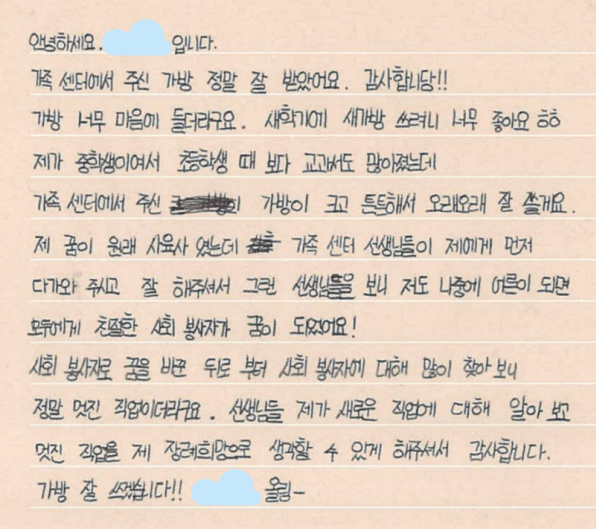 안녕하세요. 입니다.
가족 센터에서 주신 가방 정말 잘 받았어요. 감사합니당!!
가방 너무 마음에 들더라구요. 새학기에 새가방 쓰려니 너무 좋아요 ㅎㅎ
제가 중학생이여서 초등학생 때 보다 교과서도 많아졌는데
가족 센터에서 주신 가방이 크고 튼튼해서 오래오래 잘 쓸게요.
제 꿈이 원래 사육사 였는데 가족 센터 선생님들이 제에게 먼저
다가와 주시고 잘 해주셔서 그런 선생님들을 보니 저도 나중에 어른이 되면
모두에게 친절한 사회 봉사자가 꿈이 되었어요!
사회 봉사자로 꿈을 바꾼 뒤로 부터 사회 봉사자에 대해 많이 찾아 보니
정말 멋진 직업이더라구요. 선생님들 제가 새로운 직업에 대해 알아 보고
멋진 직업을 제 장례희망으로 생각할 수 있게 해주셔서 감사합니다.
가방 잘 쓰겠습니다!! 올림-